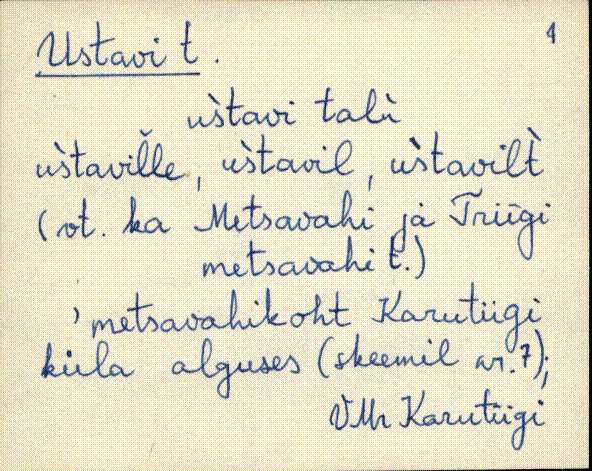 4
Ustavi t.
us̀tavi talù
us̀tavil̆le, us̀tavil, us̀tavilt̀
(vt. ka Metsavahi ja Triigi
metsavahi t.)
, metsavahikoht Karutiigi
küla alguses (skeemil nr. 7);
VMr Karutiigi